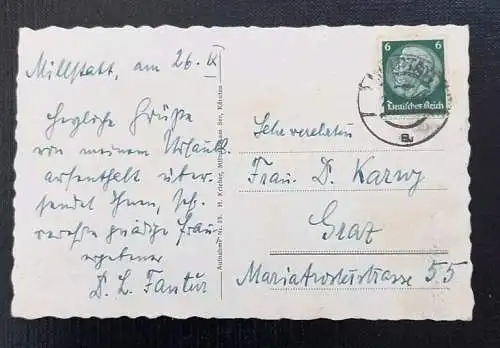 Millstatt, am 26. IX
Herzliche Grüße
von meinem Urlaubs
aufenthalt über
sendet Ihnen, sehr
verehrte gnädige Frau
ergebener
D. L. Fantur
Aufnahme Nr. H. Krieber, Millstatt am See, Kärnten
6 6
Deutsches Reich
Sehr verehrten
Frau D. Karwy
Graz
Mariatrosterstrasse 55